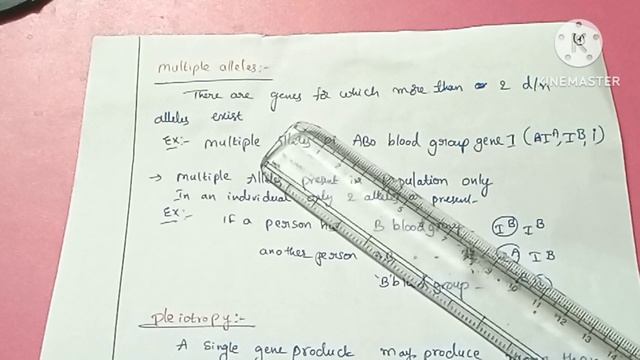 KINEMASTER
multiple alleles:-
There are genes for which more than 2 d/n
alleles exist
Ex:- multiple alleles of ABO blood group gene I (AIA, IB, i)
→ multiple alleles present in population only
In an individual only 2 alleles present-
Ex:- if a person has B blood group - IB IB
another person IA IB
'B' blood group -
Pleiotropy:-
A single gene product may produce more than